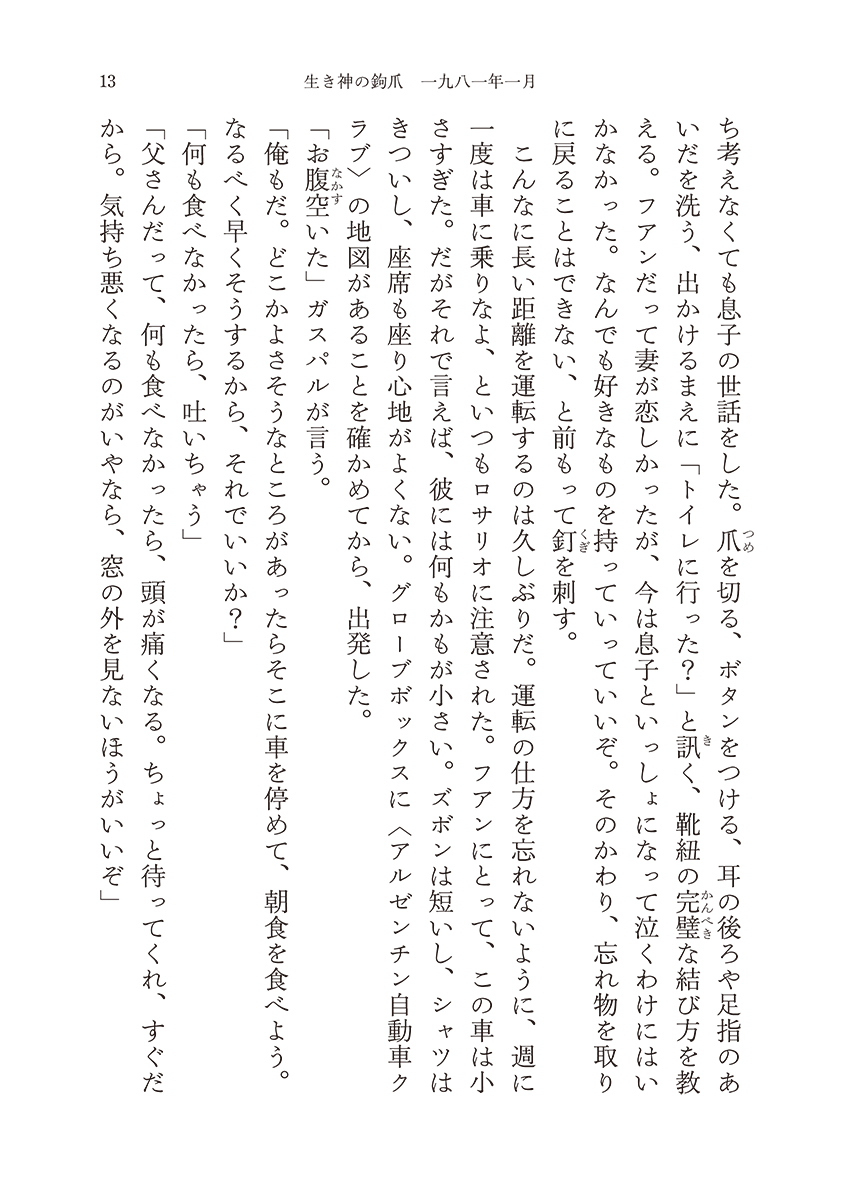 13
生き神の鉤爪　一九八一年一月
ち考えなくても息子の世話をした。爪を切る、ボタンをつける、耳の後ろや足指のあ
いだを洗う、出かけるまえに「トイレに行った？」と訊く、靴紐の完璧な結び方を教
える。フアンだって妻が恋しかったが、今は息子といっしょになって泣くわけにはい
かなかった。なんでも好きなものを持っていっていいぞ。そのかわり、忘れ物を取り
に戻ることはできない、と前もって釘を刺す。
　こんなに長い距離を運転するのは久しぶりだ。運転の仕方を忘れないように、週に
一度は車に乗りなよ、といつもロサリオに注意された。フアンにとって、この車は小
さすぎた。だがそれで言えば、彼には何もかもが小さい。ズボンは短いし、シャツは
きついし、座席も座り心地がよくない。グローブボックスに〈アルゼンチン自動車ク
ラブ〉の地図があることを確かめてから、出発した。
「お腹空いた」ガスパルが言う。
「俺もだ。どこかよさそうなところがあったらそこに車を停めて、朝食を食べよう。
なるべく早くそうするから、それでいいか？」
「何も食べなかったら、吐いちゃう」
「父さんだって、何も食べなかったら、頭が痛くなる。ちょっと待ってくれ、すぐだ
から。気持ち悪くなるのがいやなら、窓の外を見ないほうがいいぞ」
つめ
き
かんぺき
くぎ
なかす